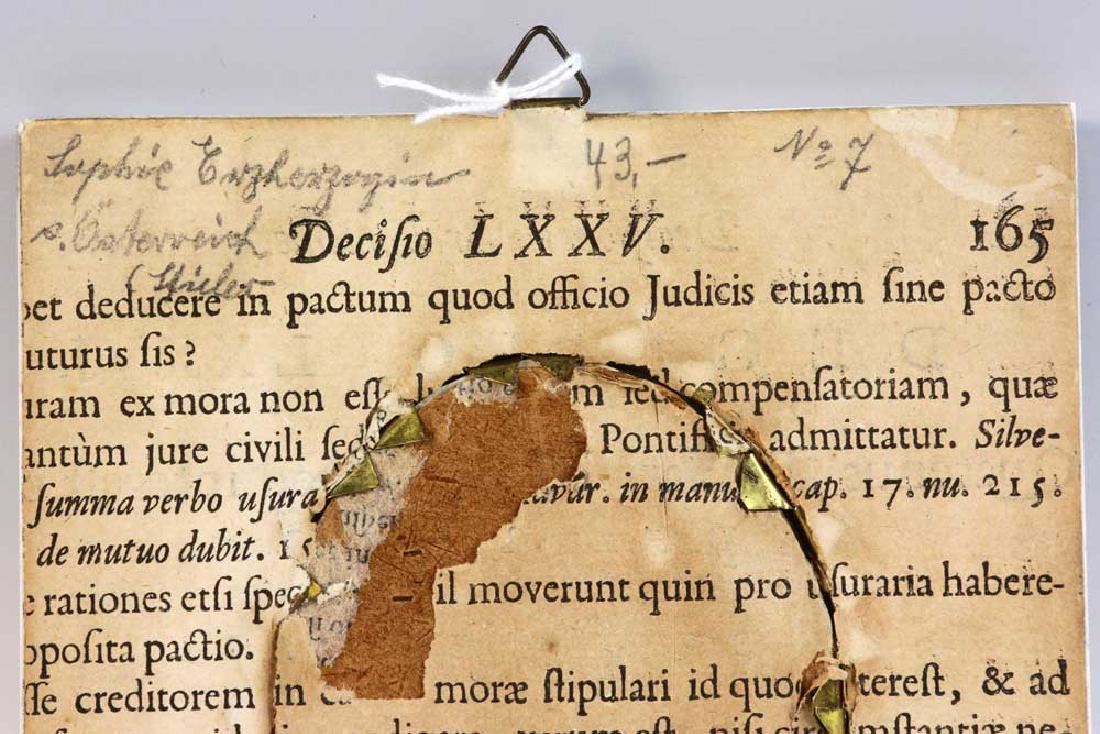 Sophie Erzherzogin 43,- No 7
v. Österreich
Stieler
Deciſio LXXV. 165
et deducere in pactum quod officio Judicis etiam ſine pacto
uturus ſis?
uram ex mora non eſſe m ſed compenſatoriam, quæ
antùm jure civili ſed Pontifi admittatur. Silve-
ſumma verbo uſura avár. in manu cap. 17. nu. 215.
de mutuo dubit. 15
rationes etſi ſpec il moverunt quin pro uſuraria habere-
poſita pactio.
ſſe creditorem in moræ ſtipulari id quod tereſt, & ad
verum eſt, niſi circumſtantiæ ne-